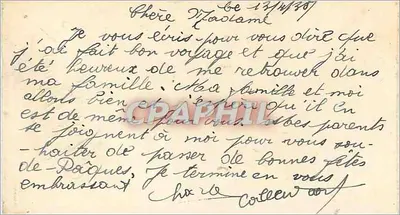 Le 13/4/30
Chère Madame
Je vous écris pour vous dire que
j'ai fait bon voyage et que j'ai
été heureux de me retrouver dans
ma famille. Ma famille et moi
allons bien et qu'il en
est de même pour vous parents
se joignent à moi pour vous sou-
haiter de passer de bonnes fêtes
de Pâques. Je termine en vous
embrassant
CPAPHIL